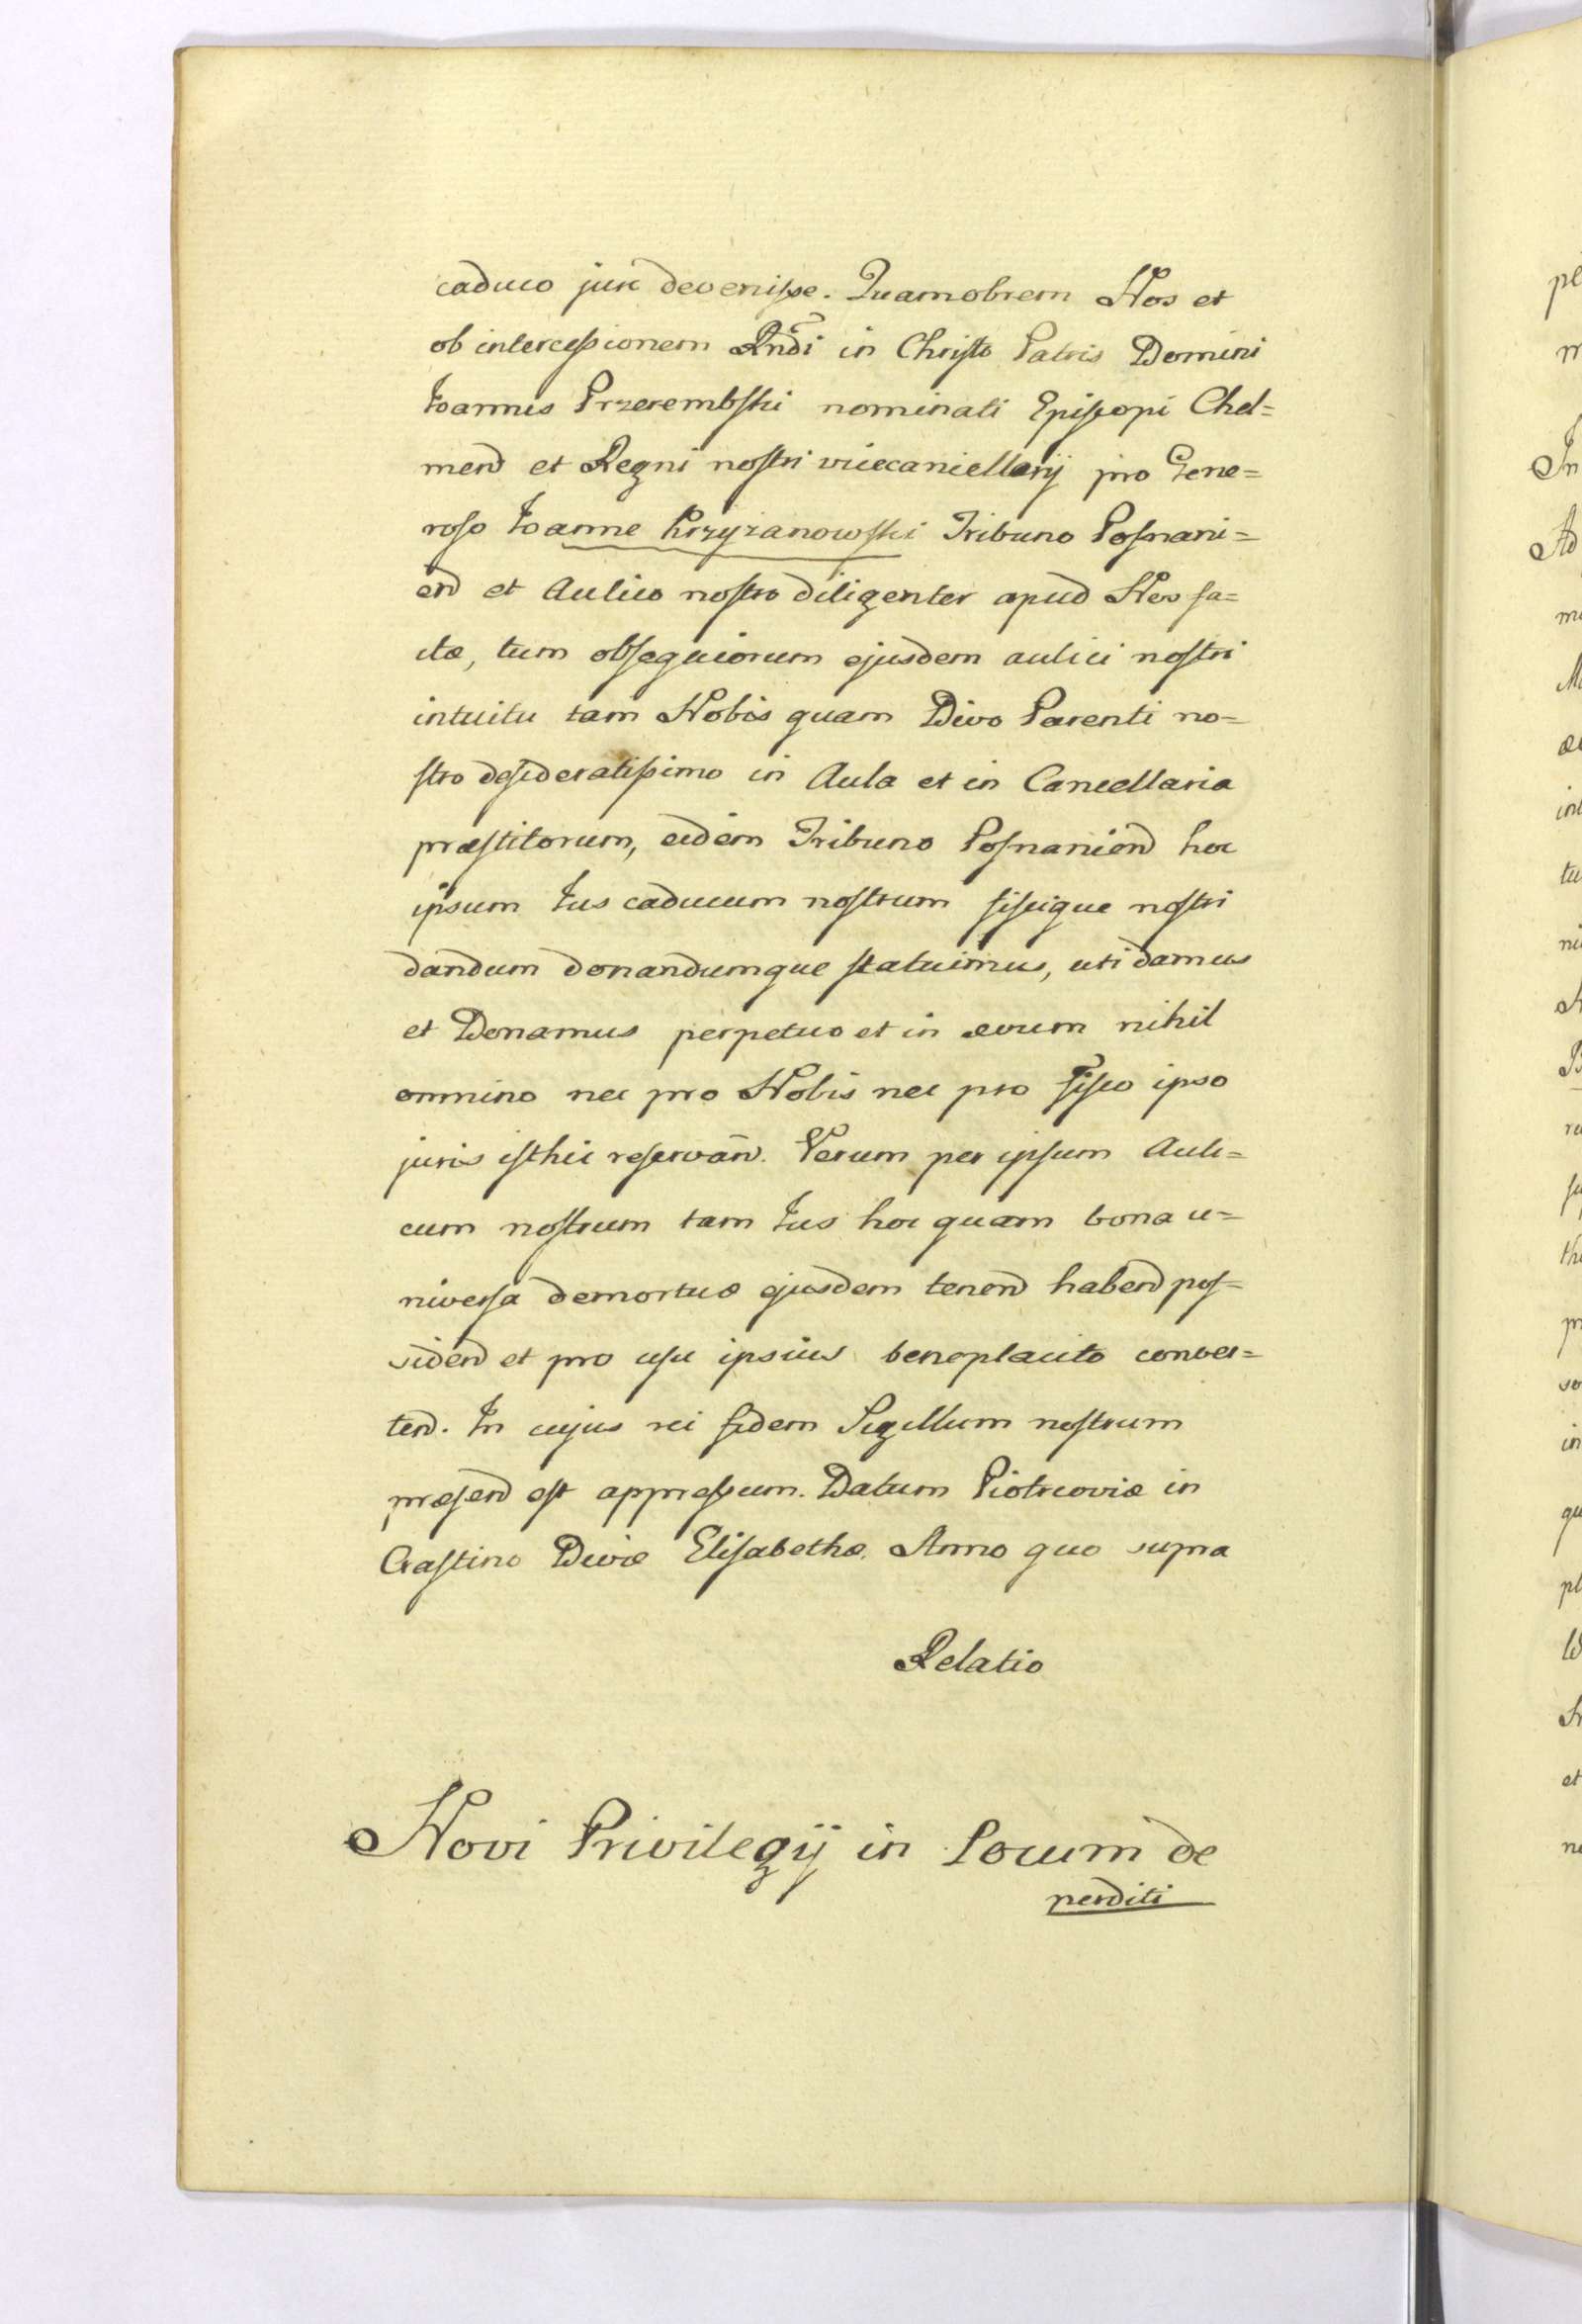 caduco jure devenisse. Quamobrem Nos et
ob intercessionem Rndi in Christo Patris Domini
Joannis Przerembski nominati Episcopi Chel=
mend et Regni nostri vicecancellarij pro Gene=
roso Joanne Krzyżanowski Tribuno Posnani=
end et Aulico nostro diligenter apud Nos fa=
ctæ, tum obsequiorum ejusdem aulici nostri
intuitu tam Nobis quam Divo Parenti no=
stro desideratissimo in Aula et in Cancellaria
præstitorum, eidem Tribuno Posnaniend hoc
ipsum Jus caducum nostrum fiscique nostri
dandum donandumque statuimus, uti damus
et Donamus perpetuo et in ævum nihil
omnino nec pro Nobis nec pro fisco ipso
juris isthic reservan̄. Verum per ipsum Auli=
cum nostrum tam Jus hoc quam bona u=
niversa demortuæ ejusdem tenend habend pos=
sidend et pro usu ipsius beneplacito conver=
tend. In cujus rei fidem Sigillum nostrum
præsend est appressum. Datum Piotrcoviæ in
Crastino Divæ Elisabethæ. Anno quo supra
Relatio
Novi Privilegij in Locum de
perditi